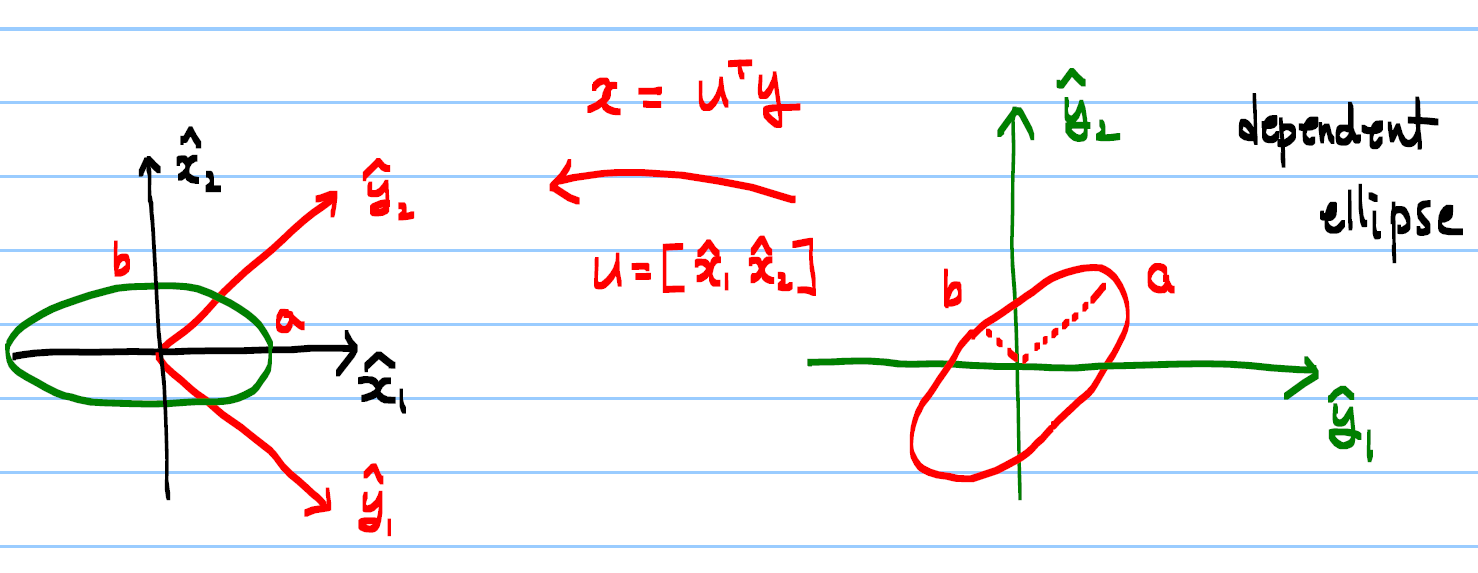 x̂₂
ŷ₂
b
a
x̂₁
ŷ₁
x = uᵀy
u = [x̂₁ x̂₂]
ŷ₂
b
a
ŷ₁
dependent
ellipse